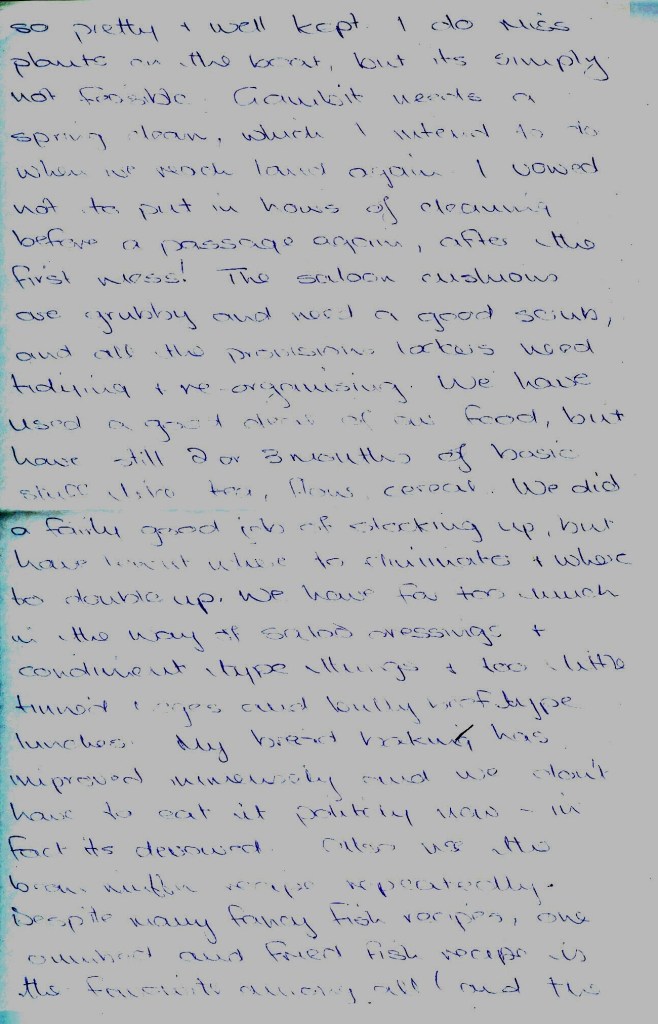 so pretty + well kept. I do miss
plants on the boat, but its simply
not feasible. Gambit needs a
spring clean, which I intend to do
when we reach land again. I vowed
not to put in hours of cleaning
before a passage again, after the
first mess! The saloon cushions
are grubby and need a good scrub,
and all the provisioning lockers need
tidying + re-organising. We have
used a great deal of our food, but
have still 2 or 3 months of basic
stuff like tea, flour, cereal. We did
a fairly good job of stocking up, but
have learnt where to eliminate + where
to double up. We have far too much
in the way of salad dressings +
condiment type things + too little
tinned and bully beef type
lunches. My bread baking has
improved immensely and we don't
have to eat it politely now - in
fact its devoured. Also use the
bran muffin recipe repeatedly.
Despite many fancy fish recipes, one
crumbed and fried fish recipe is
the favourite among all (and the